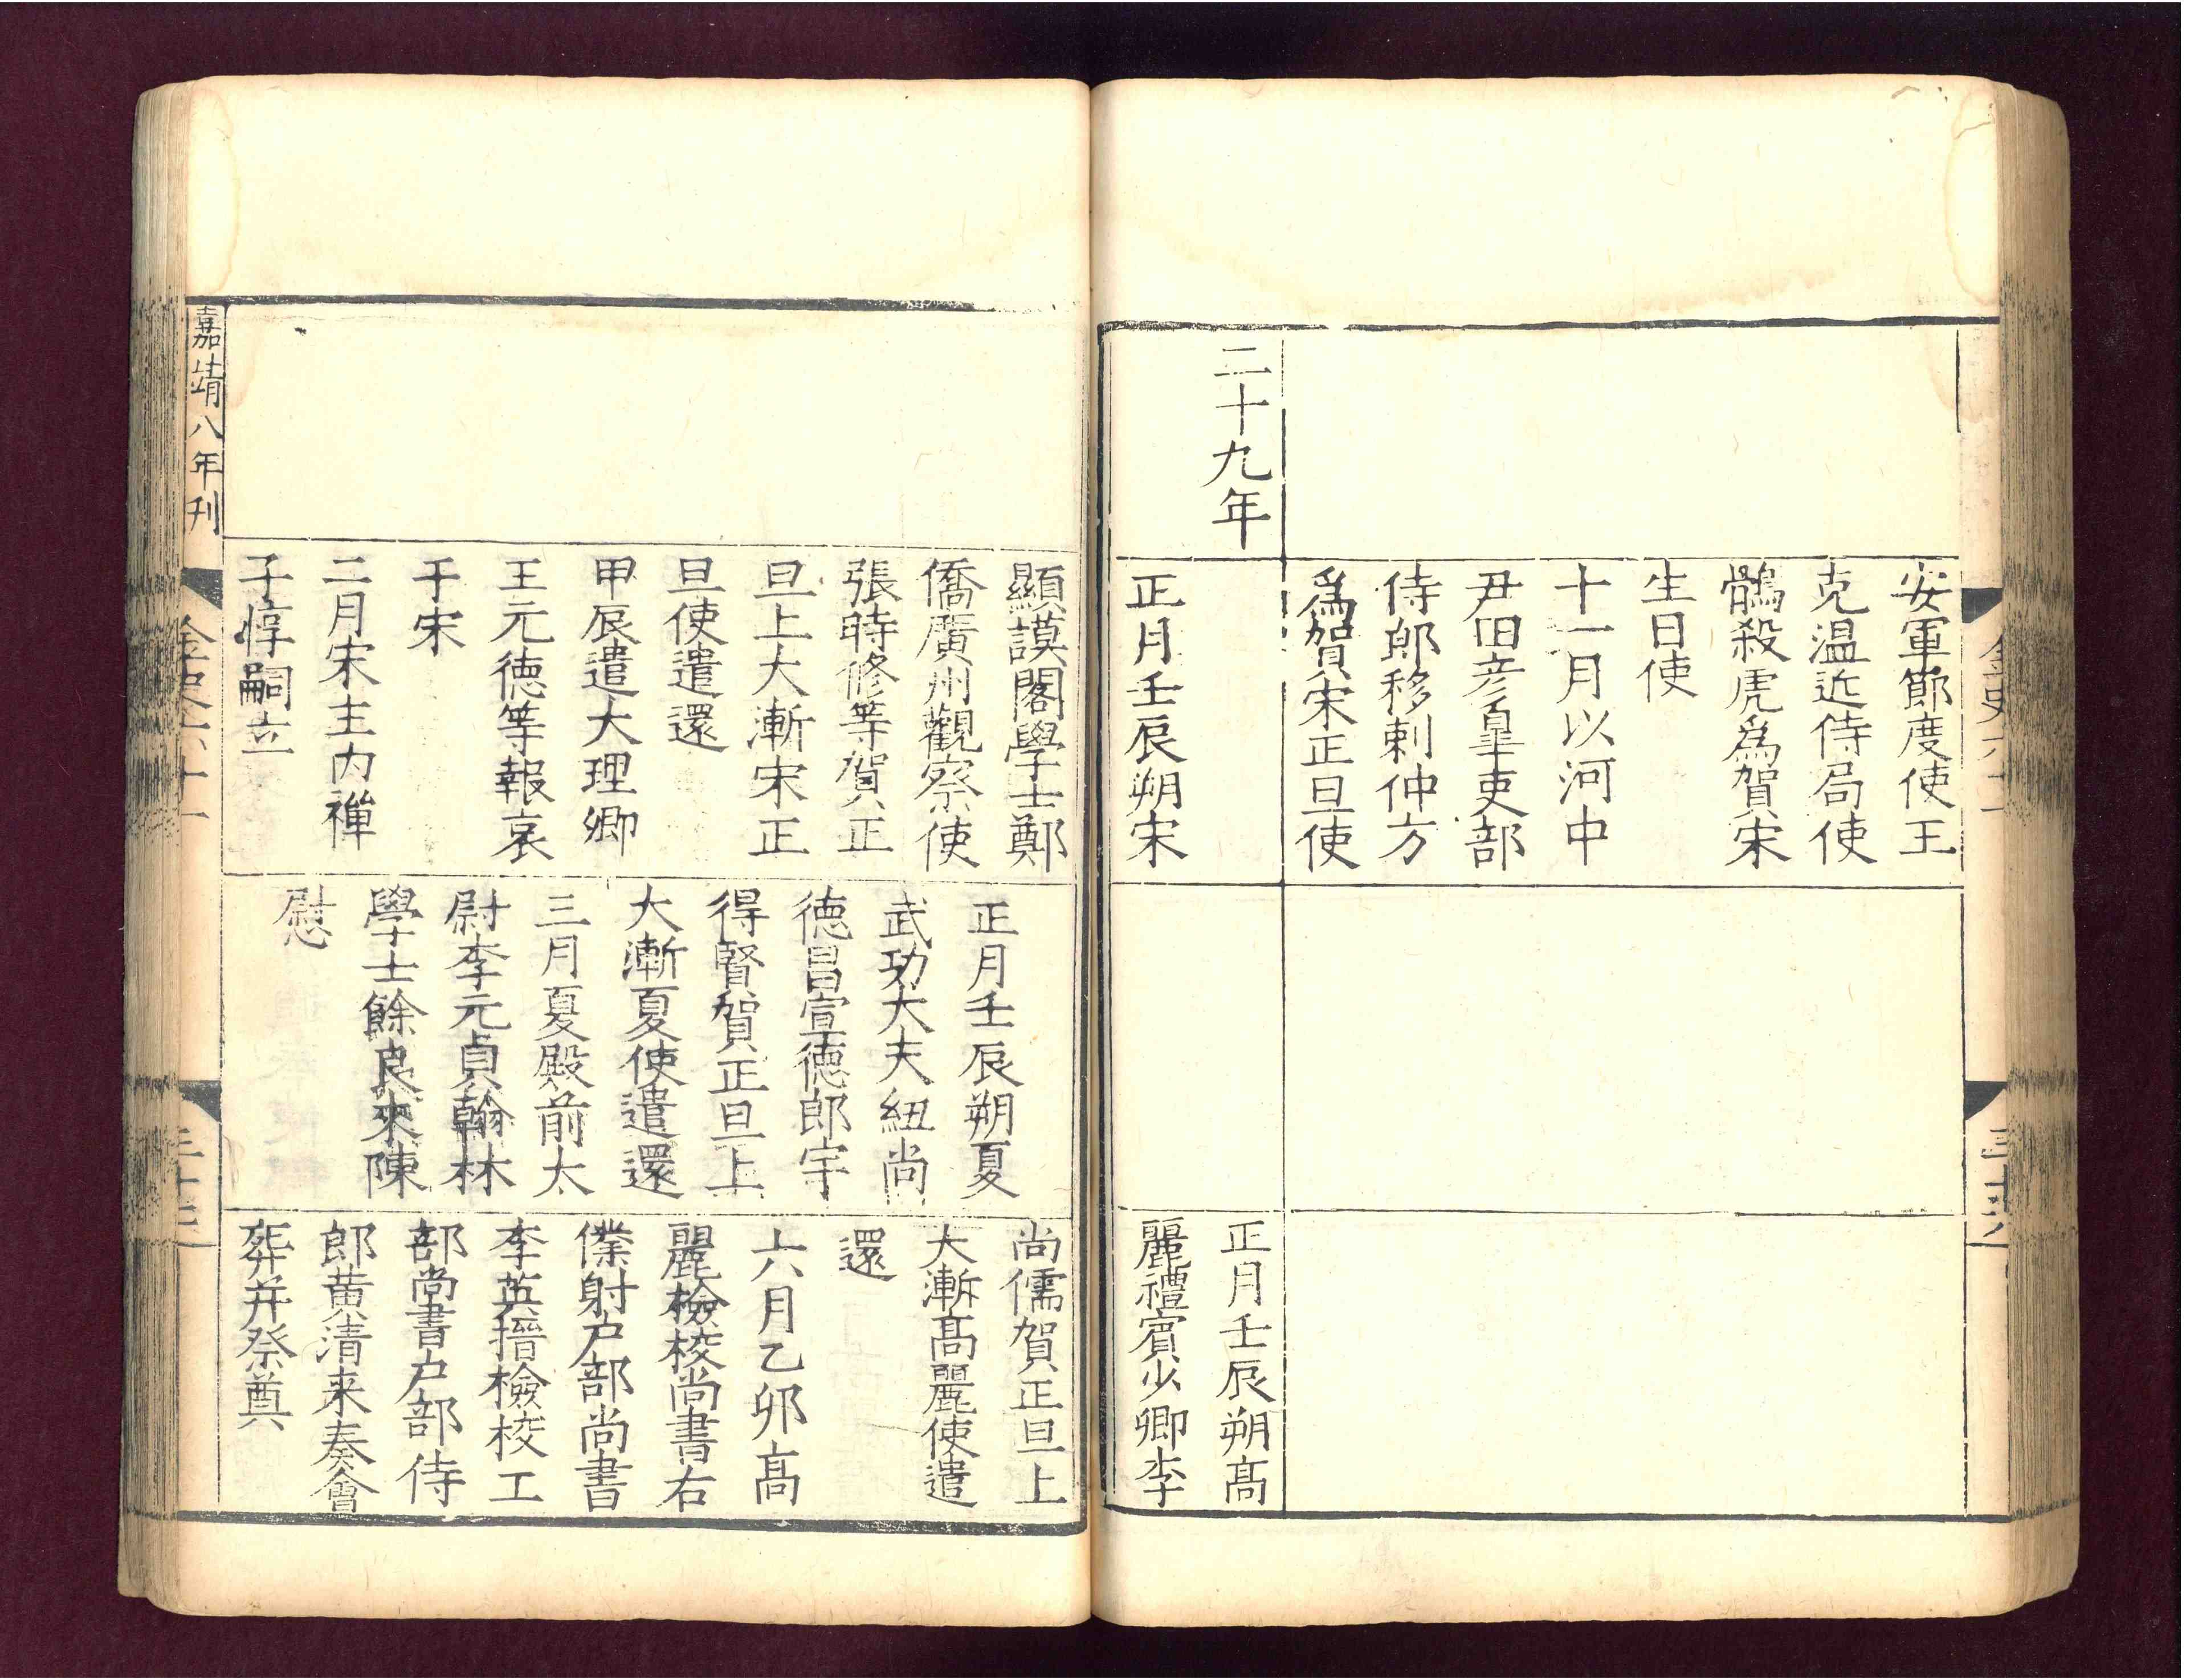 安軍節度使王
克温近侍局使
鶻殺虎爲賀宋
生日使
十一月以河中
尹田彦皐吏部
侍郎移剌仲方
爲賀宋正旦使
二十九年
正月壬辰朔宋
正月壬辰朔髙
麗禮賓少卿李
顯謨閣學士鄭
僑廣州觀察使
張時修等賀正
旦上大漸宋正
旦使遣還
甲辰遣大理卿
王元德等報哀
于宋
二月宋主内禪
子惇嗣立
正月壬辰朔夏
武功大夫紐尚
德昌宣德郎宇
得賢賀正旦上
大漸夏使遣還
三月夏殿前太
尉李元貞翰林
學士餘良來陳
慰
尚儒賀正旦上
大漸髙麗使遣
還
六月乙卯髙
麗檢校尚書右
僕射户部尚書
李英搢檢校工
部尚書户部侍
郎黄清来奏會
葬并祭奠
嘉靖八年刋
金史六十一
三十七